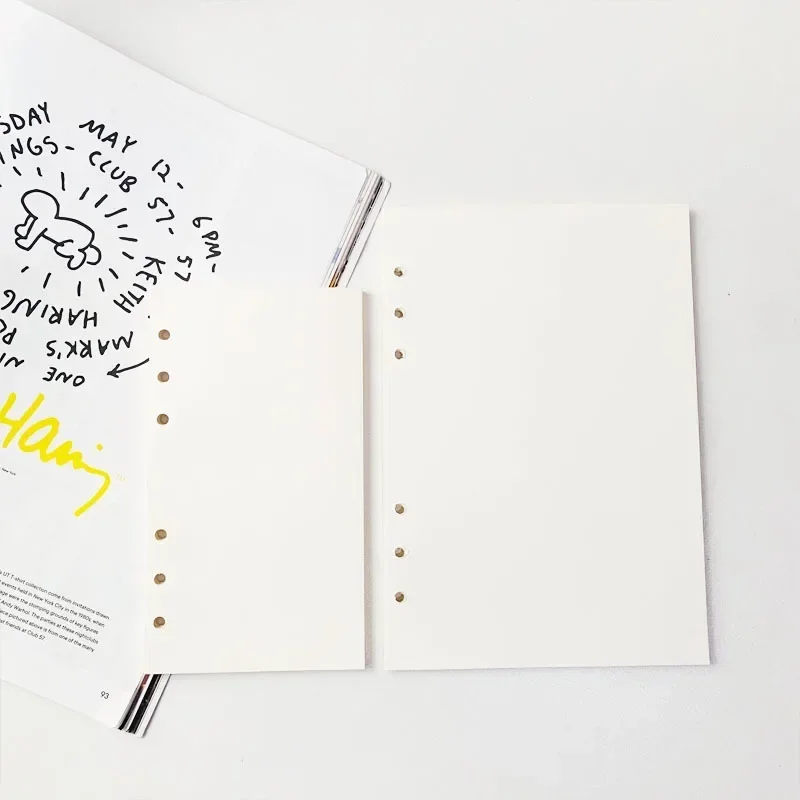 SDAY MAY 12- 6PM-
INGS- CLUB 57- 57
KEITH
HARING
MARK'S
ONE
Haring
New York
UT T-shirt collection come from invitations drawn
events held in New York City in the 1980s, when
age were the stomping grounds of key figures
Andy Warhol. The parties at these nightclubs
iece pictured above is from one of the many
st friends at Club 57.
93